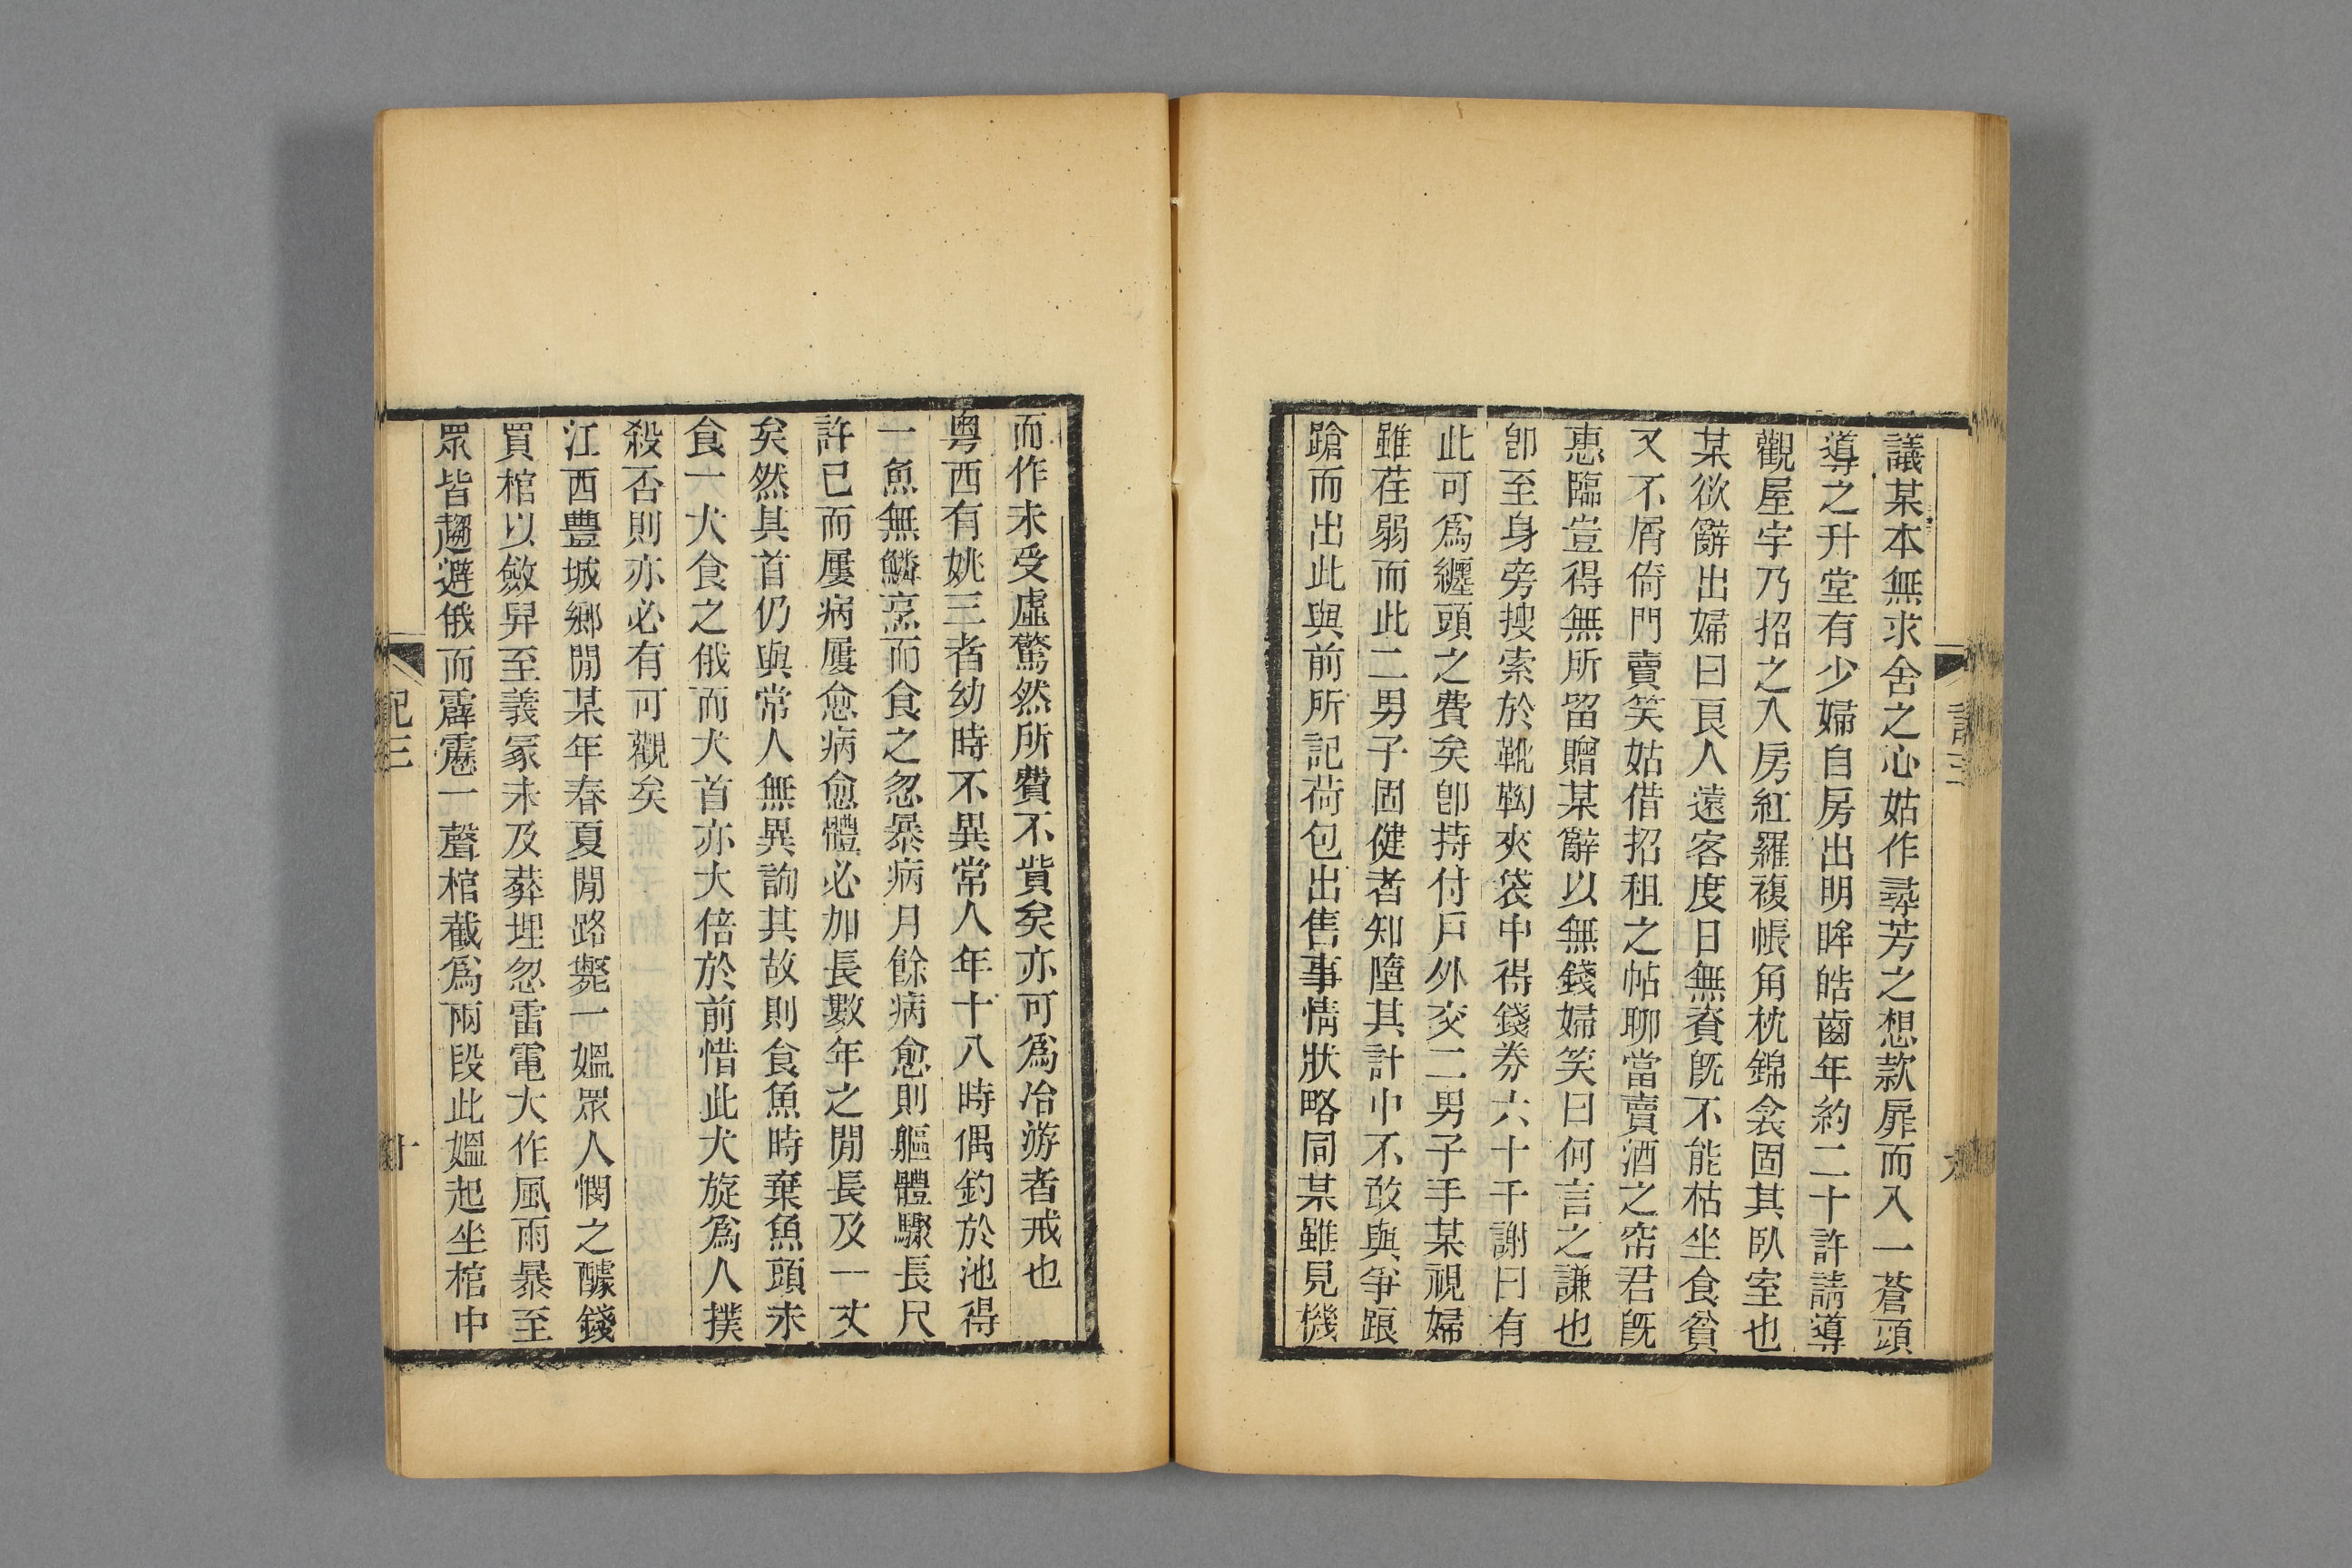 議某本無求舍之心姑作尋芳之想款扉而入一蒼頭
導之升堂有少婦自房出明眸皓齒年約二十許請導
觀屋宇乃招之入房紅羅複帳角枕錦衾固其臥室也
某欲辭出婦曰良人遠客度日無資旣不能枯坐食貧
又不屑倚門賣笑姑借招租之帖聊當賣酒之帘君旣
惠臨豈得無所留贈某辭以無錢婦笑曰何言之謙也
卽至身旁搜索於靴靿夾袋中得錢券六十千謝曰有
此可爲纏頭之費矣卽持付戶外交二男子手某視婦
雖荏弱而此二男子固健者知墮其計中不敢與爭踉
蹌而出此與前所記荷包出售事情狀略同某雖見機
而作未受虛驚然所費不貲矣亦可爲冶游者戒也
粵西有姚三者幼時不異常人年十八時偶釣於池得
一魚無鱗烹而食之忽暴病月餘病愈則軀體驟長尺
許已而屢病屢愈病愈體必加長數年之閒長及一丈
矣然其首仍與常人無異詢其故則食魚時棄魚頭未
食一犬食之俄而犬首亦大倍於前惜此犬旋爲人撲
殺否則亦必有可觀矣
江西豐城鄉閒某年春夏閒路斃一媼眾人憫之醵錢
買棺以斂舁至義冢未及葬埋忽雷電大作風雨暴至
眾皆趨避俄而霹靂一聲棺截爲兩段此媼起坐棺中
記三
十